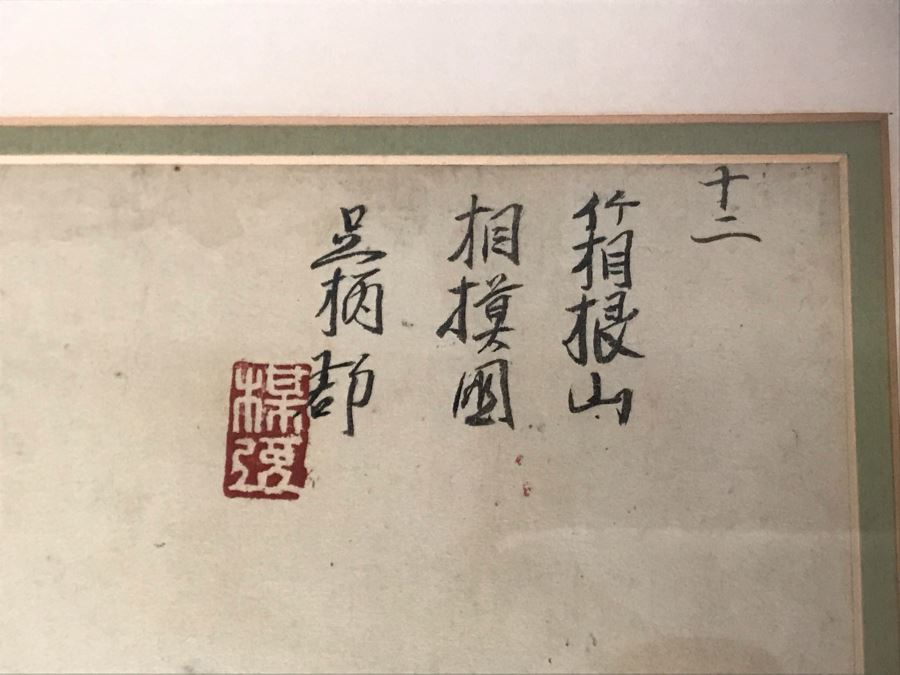 十二
箱根山
相摸國
足柄郡